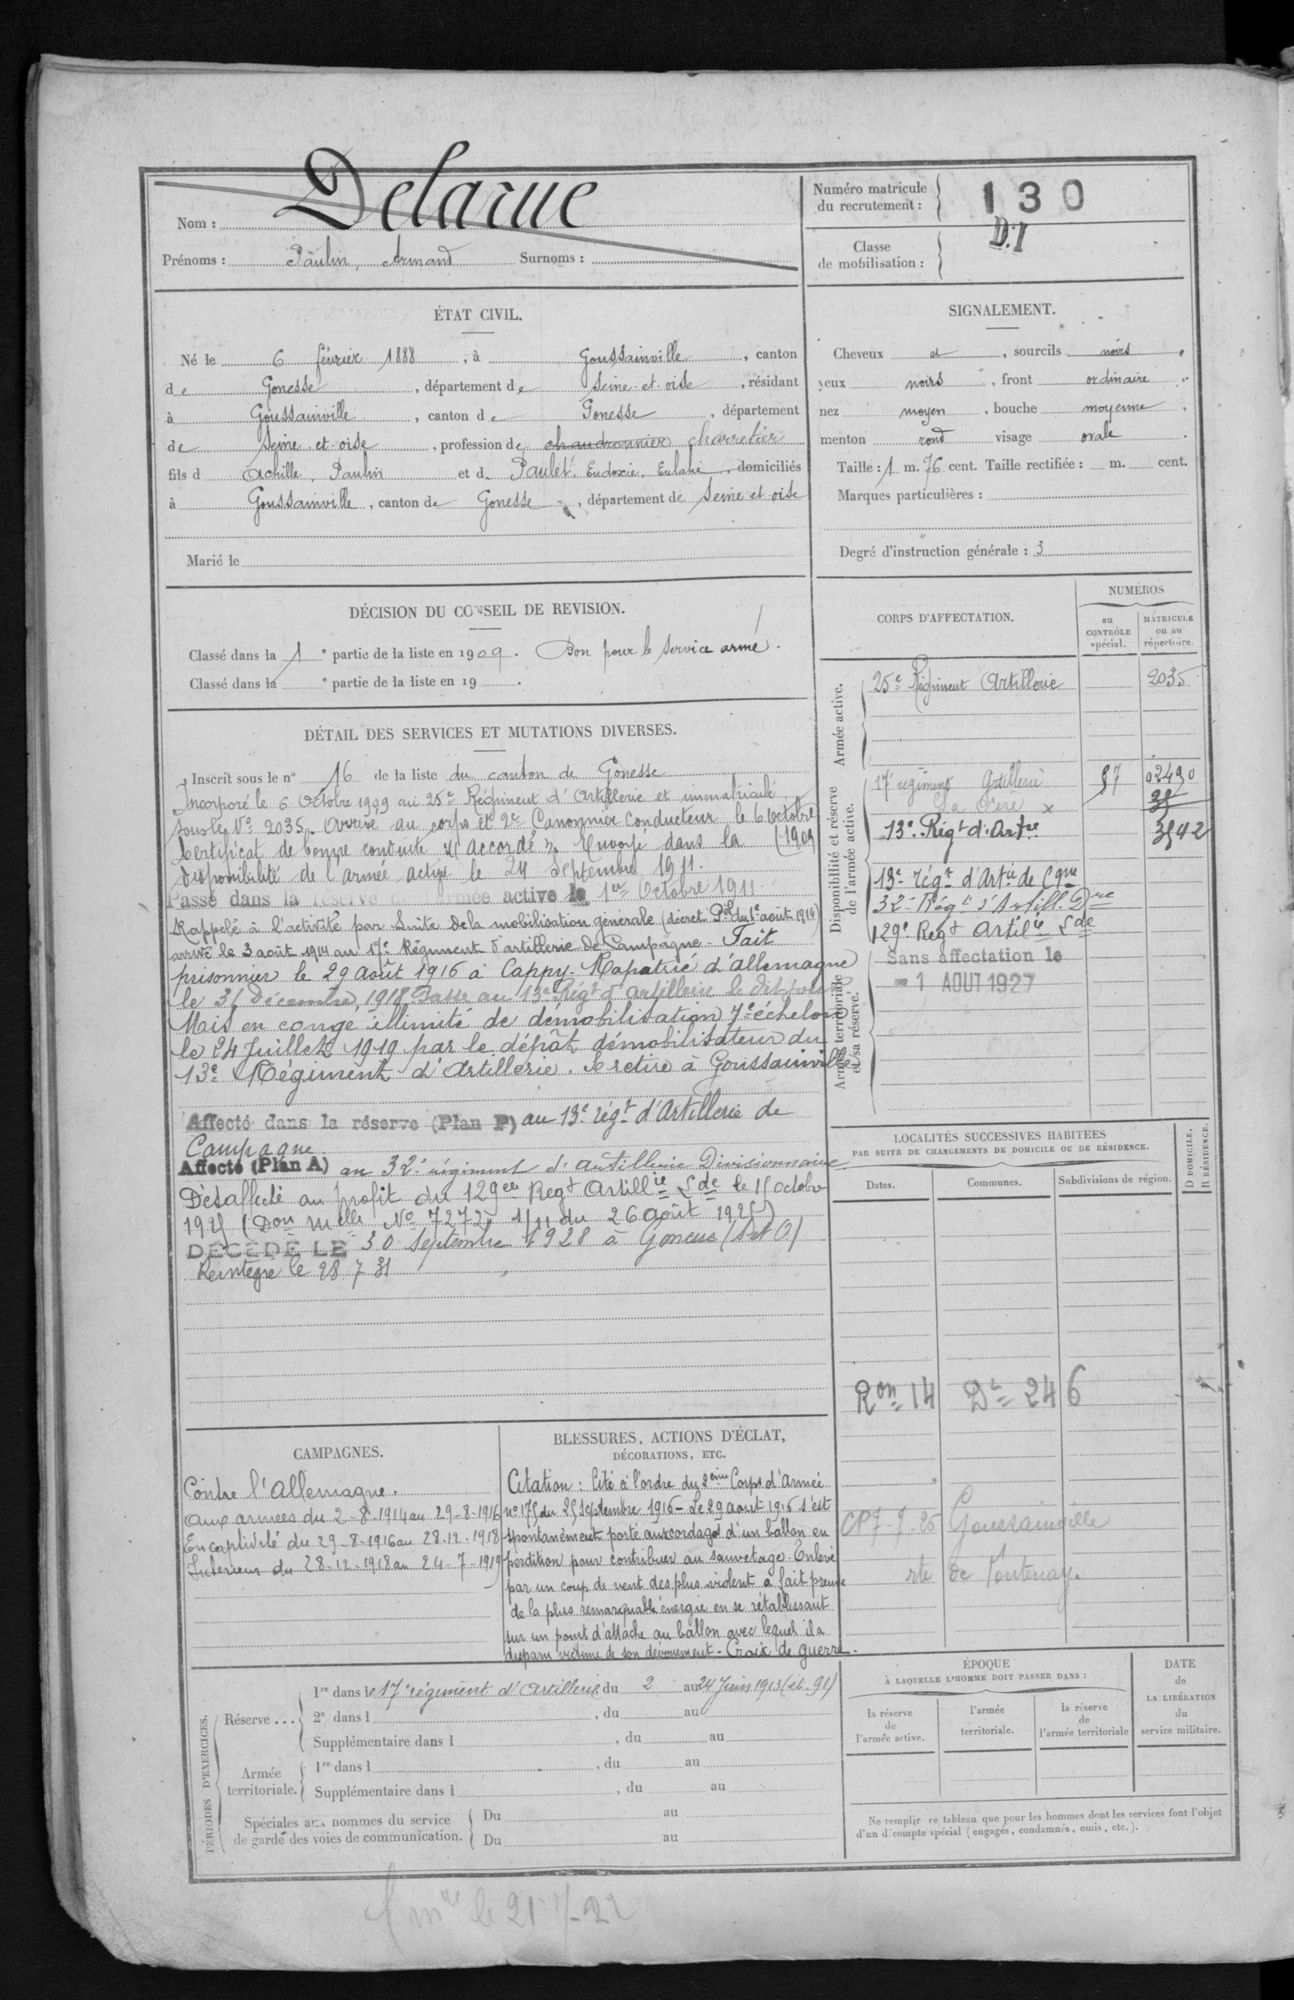 Nom : Delarue
Prénoms : Paulin, Armand Surnoms :
Numéro matricule du recrutement : 130
D.I
Classe de mobilisation :
ÉTAT CIVIL.
Né le 6 février 1888, à Goussainville, canton
de Gonesse, département de Seine-et-oise, résidant
à Goussainville, canton de Gonesse, département
de Seine et oise, profession de chaudronnier charretier
fils d Achille, Paulin et d Paulet, Eudoxie, Eulalie, domiciliés
à Goussainville, canton de Gonesse, département de Seine et oise
Marié le
SIGNALEMENT.
Cheveux et, sourcils noirs,
yeux noirs, front ordinaire,
nez moyen, bouche moyenne,
menton rond visage ovale.
Taille : 1 m. 76 cent. Taille rectifiée : m. cent.
Marques particulières :
Degré d'instruction générale : 3
DÉCISION DU CONSEIL DE REVISION.
Classé dans la 1e partie de la liste en 1909. Bon pour le service armé.
Classé dans la e partie de la liste en 19 .
DÉTAIL DES SERVICES ET MUTATIONS DIVERSES.
Inscrit sous le n° 16 de la liste du canton de Gonesse
Incorporé le 6 Octobre 1909 au 25e Régiment d'Artillerie et immatriculé
sous le No 2035. Arrivé au corps et 2e Canonnier conducteur le 6 Octobre
Certificat de bonne conduite "accordé". Envoyé dans la (1909
disponibilité de l'armée active le 24 Septembre 1911.
Passé dans la réserve de l'armée active le 1er Octobre 1911.
Rappelé à l'activité par suite de la mobilisation générale (décret Pel du 1e août 1914)
arrivé le 3 août 1914 au 17e Régiment d'artillerie de Campagne - Fait
prisonnier le 29 août 1916 à Cappy. Rapatrié d'allemagne
le 31 Décembre 1918. Passé au 13e Régt d'artillerie le dit jour
Mis en congé illimité de démobilisation 7e échelon
le 24 Juillet 1919 par le dépôt démobilisateur du
13e Régiment d'Artillerie. Se retire à Goussainville
Affecté dans la réserve (Plan P) au 13e régt d'Artillerie de
Campagne
Affecté (Plan A) au 32e régiment d'artillerie Divisionnaire
Désaffecté au profit du 129e Regt Artillie Lde le 15 octobre
1925 (Don Melle No 7272 1/11 du 26 août 1925)
DECEDE LE 30 septembre 1928 à Gonesse (S et O)
Réintégré le 28 7 31
CORPS D'AFFECTATION.
NUMÉROS
au CONTRÔLE spécial.
MATRICULE ou au répertoire.
Armée active.
25e Régiment Artillerie 2035
Disponibilité et réserve de l'armée active.
17e régiment Artillerie 57 02490
La Fère x
13e Régt d'Artie 3542
13e régt d'Artie de Cgne
32e Régt d'Artill. Dre
129e Regt Artilie Lde
Armée territoriale et sa réserve.
Sans affectation le
-1 AOUT 1927
LOCALITÉS SUCCESSIVES HABITÉES
PAR SUITE DE CHANGEMENTS DE DOMICILE OU DE RÉSIDENCE.
Dates. Communes. Subdivisions de région. D DOMICILE. R RÉSIDENCE.
Ron 14 De 246
CP 7-9-26 Goussainville
rte de Fontenay.
CAMPAGNES.
Contre l'Allemagne.
aux armées du 2-8-1914 au 29-8-1916
En captivité du 29-8-1916 au 28.12.1918
Intérieur du 28-12-1918 au 24-7-1919
BLESSURES, ACTIONS D'ÉCLAT,
DÉCORATIONS, ETC.
Citation : Cité à l'ordre du 2ème Corps d'Armée
no 175 du 25 septembre 1916 - Le 29 août 1916 s'est
spontanément porté aux cordages d'un ballon en
perdition pour contribuer au sauvetage. Enlevé
par un coup de vent des plus violent a fait preuve
de la plus remarquable énergie en se rétablissant
sur un point d'attache au ballon avec lequel il a
disparu victime de son dévouement - Croix de guerre.
PÉRIODES D'EXERCICES.
Réserve...
1re dans le 17e régiment d'Artillerie, du 2 au 24 Juin 1913 (ct. 91)
2e dans l , du au
Supplémentaire dans l , du au
Armée territoriale.
1re dans l , du au
Supplémentaire dans l , du au
Spéciales aux hommes du service
de garde des voies de communication.
Du au
Du au
ÉPOQUE
À LAQUELLE L'HOMME DOIT PASSER DANS :
la réserve de l'armée active.
l'armée territoriale.
la réserve de l'armée territoriale
DATE de LA LIBÉRATION du service militaire.
Ne remplir ce tableau que pour les hommes dont les services font l'objet
d'un décompte spécial (engagés, condamnés, omis, etc.).